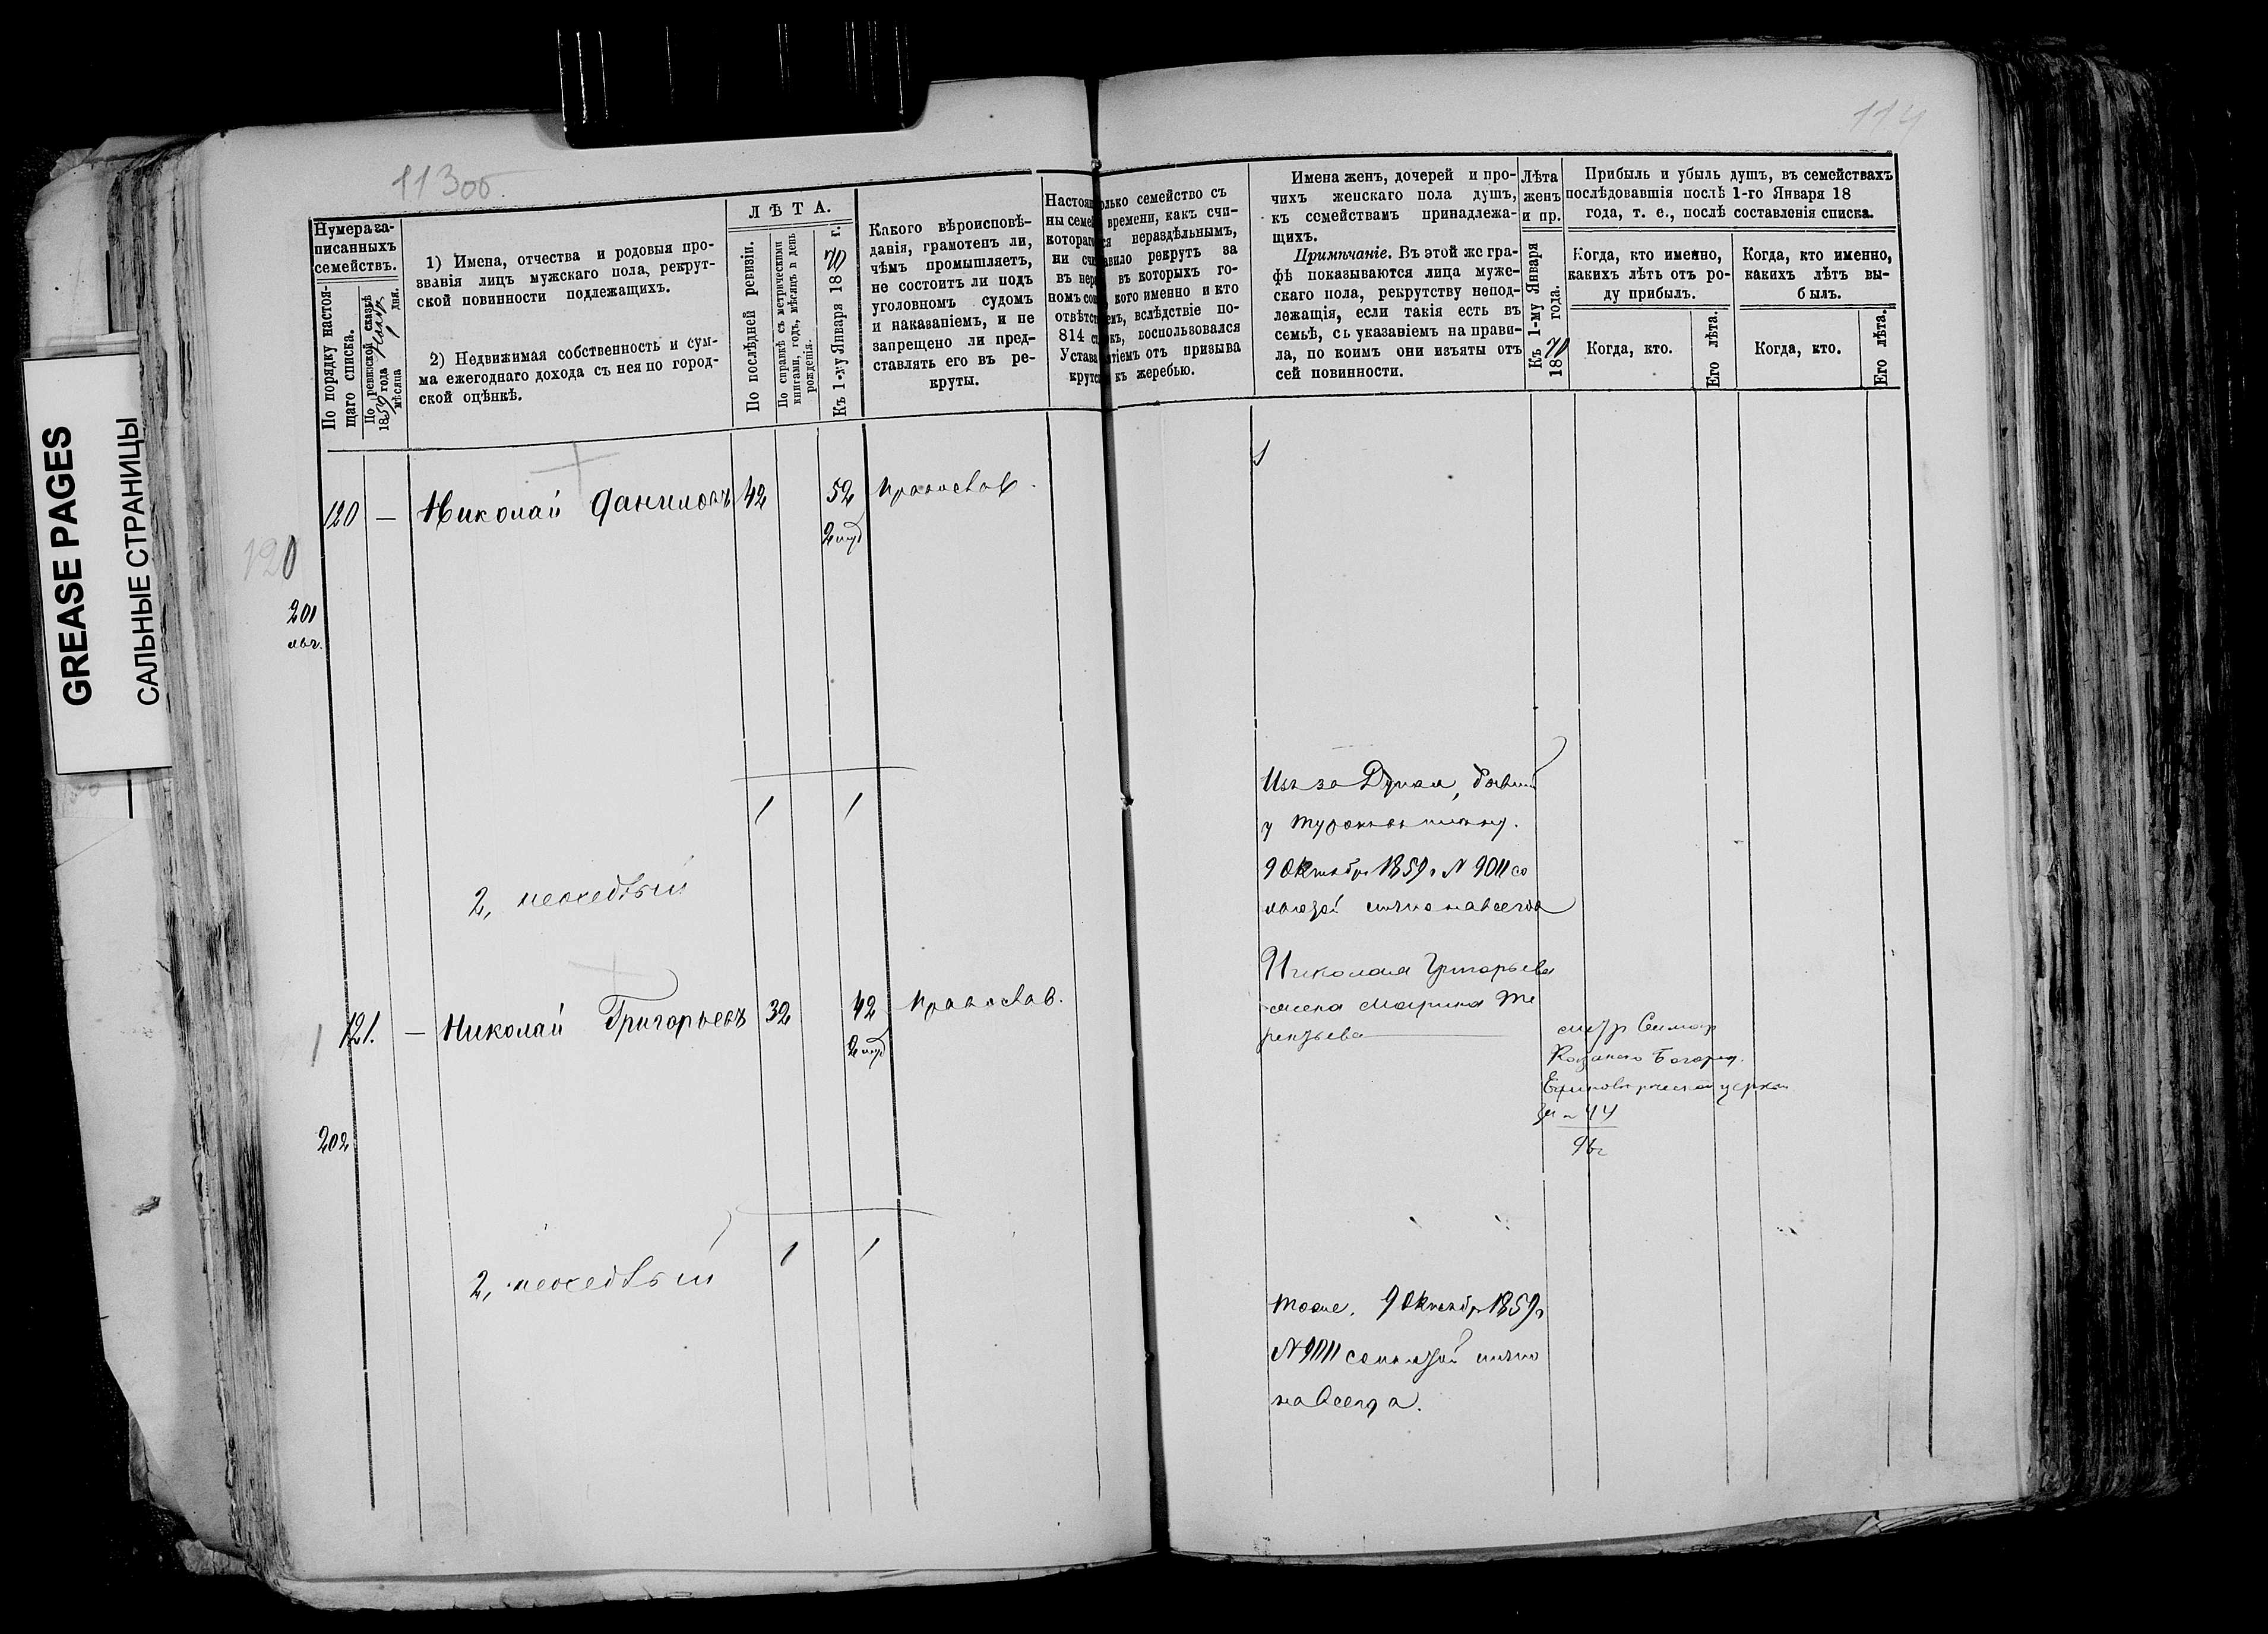 GREASE PAGES
САЛЬНЫЕ СТРАНИЦЫ
113об
114
Нумера за-
писанныхъ
семействъ.
По порядку настоя-
щаго списка.
По ревизской сказкѣ
1857 года
мѣсяца 1 дня.
1) Имена, отчества и родовыя про-
званія лицъ мужскаго пола, рекрут-
ской повинности подлежащихъ.
2) Недвижимая собственность и сум-
ма ежегоднаго дохода съ нея по город-
ской оцѣнкѣ.
ЛѢТА.
По послѣдней ревизіи.
По справкѣ съ метрическими
книгами, годъ, мѣсяцъ и день
рожденія.
Къ 1-му Января 1870 г.
Какого вѣроисповѣ-
данія, грамотенъ ли,
чѣмъ промышляетъ,
не состоитъ ли подъ
уголовномъ судомъ
и наказаніемъ, и не
запрещено ли пред-
ставлять его въ ре-
круты.
Настоя олько семейство съ
ны семей времени, какъ счи-
котораго ся нераздѣльнымъ,
ни счи авило рекрутъ за
въ нер въ которыхъ го-
номъ со кого именно и кто
отвѣтст емъ, вслѣдствіе по-
814 ст къ, воспользовался
Устава тіемъ отъ призыва
крутс къ жеребью.
Имена женъ, дочерей и про-
чихъ женскаго пола душъ,
къ семействамъ принадлежа-
щихъ.
Примѣчаніе. Въ этой же гра-
фѣ показываются лица муже-
скаго пола, рекрутству непод-
лежащія, если такія есть въ
семьѣ, съ указаніемъ на прави-
ла, по коимъ они изъяты отъ
сей повинности.
Лѣта
женъ
и пр.
Къ 1-му Января
1870 года.
Прибыль и убыль душъ, въ семействахъ
послѣдовавшія послѣ 1-го Января 18
года, т. е., послѣ составленія списка.
Когда, кто именно,
какихъ лѣтъ отъ ро-
ду прибылъ.
Когда, кто.
Его лѣта.
Когда, кто именно,
какихъ лѣтъ вы-
былъ.
Когда, кто.
Его лѣта.
120 — Николай Даниловъ 42 52 Православ.
120
201
1 1
Изъ за Дуная, бывш
9 Октябр 1859 г N 9011 со
льготой лично навсегда
2,
121. — Николай Григорьевъ 32 42 Православ.
Николая Григорьева
жена Марина Те
рентьева
метр
Казанско Богород.
Единоверческой церкви
за N 44
96 г
202
1 1
2,
тоже. 9 Октябр 1859 г
N 9011 со льготой лично
навсегда.